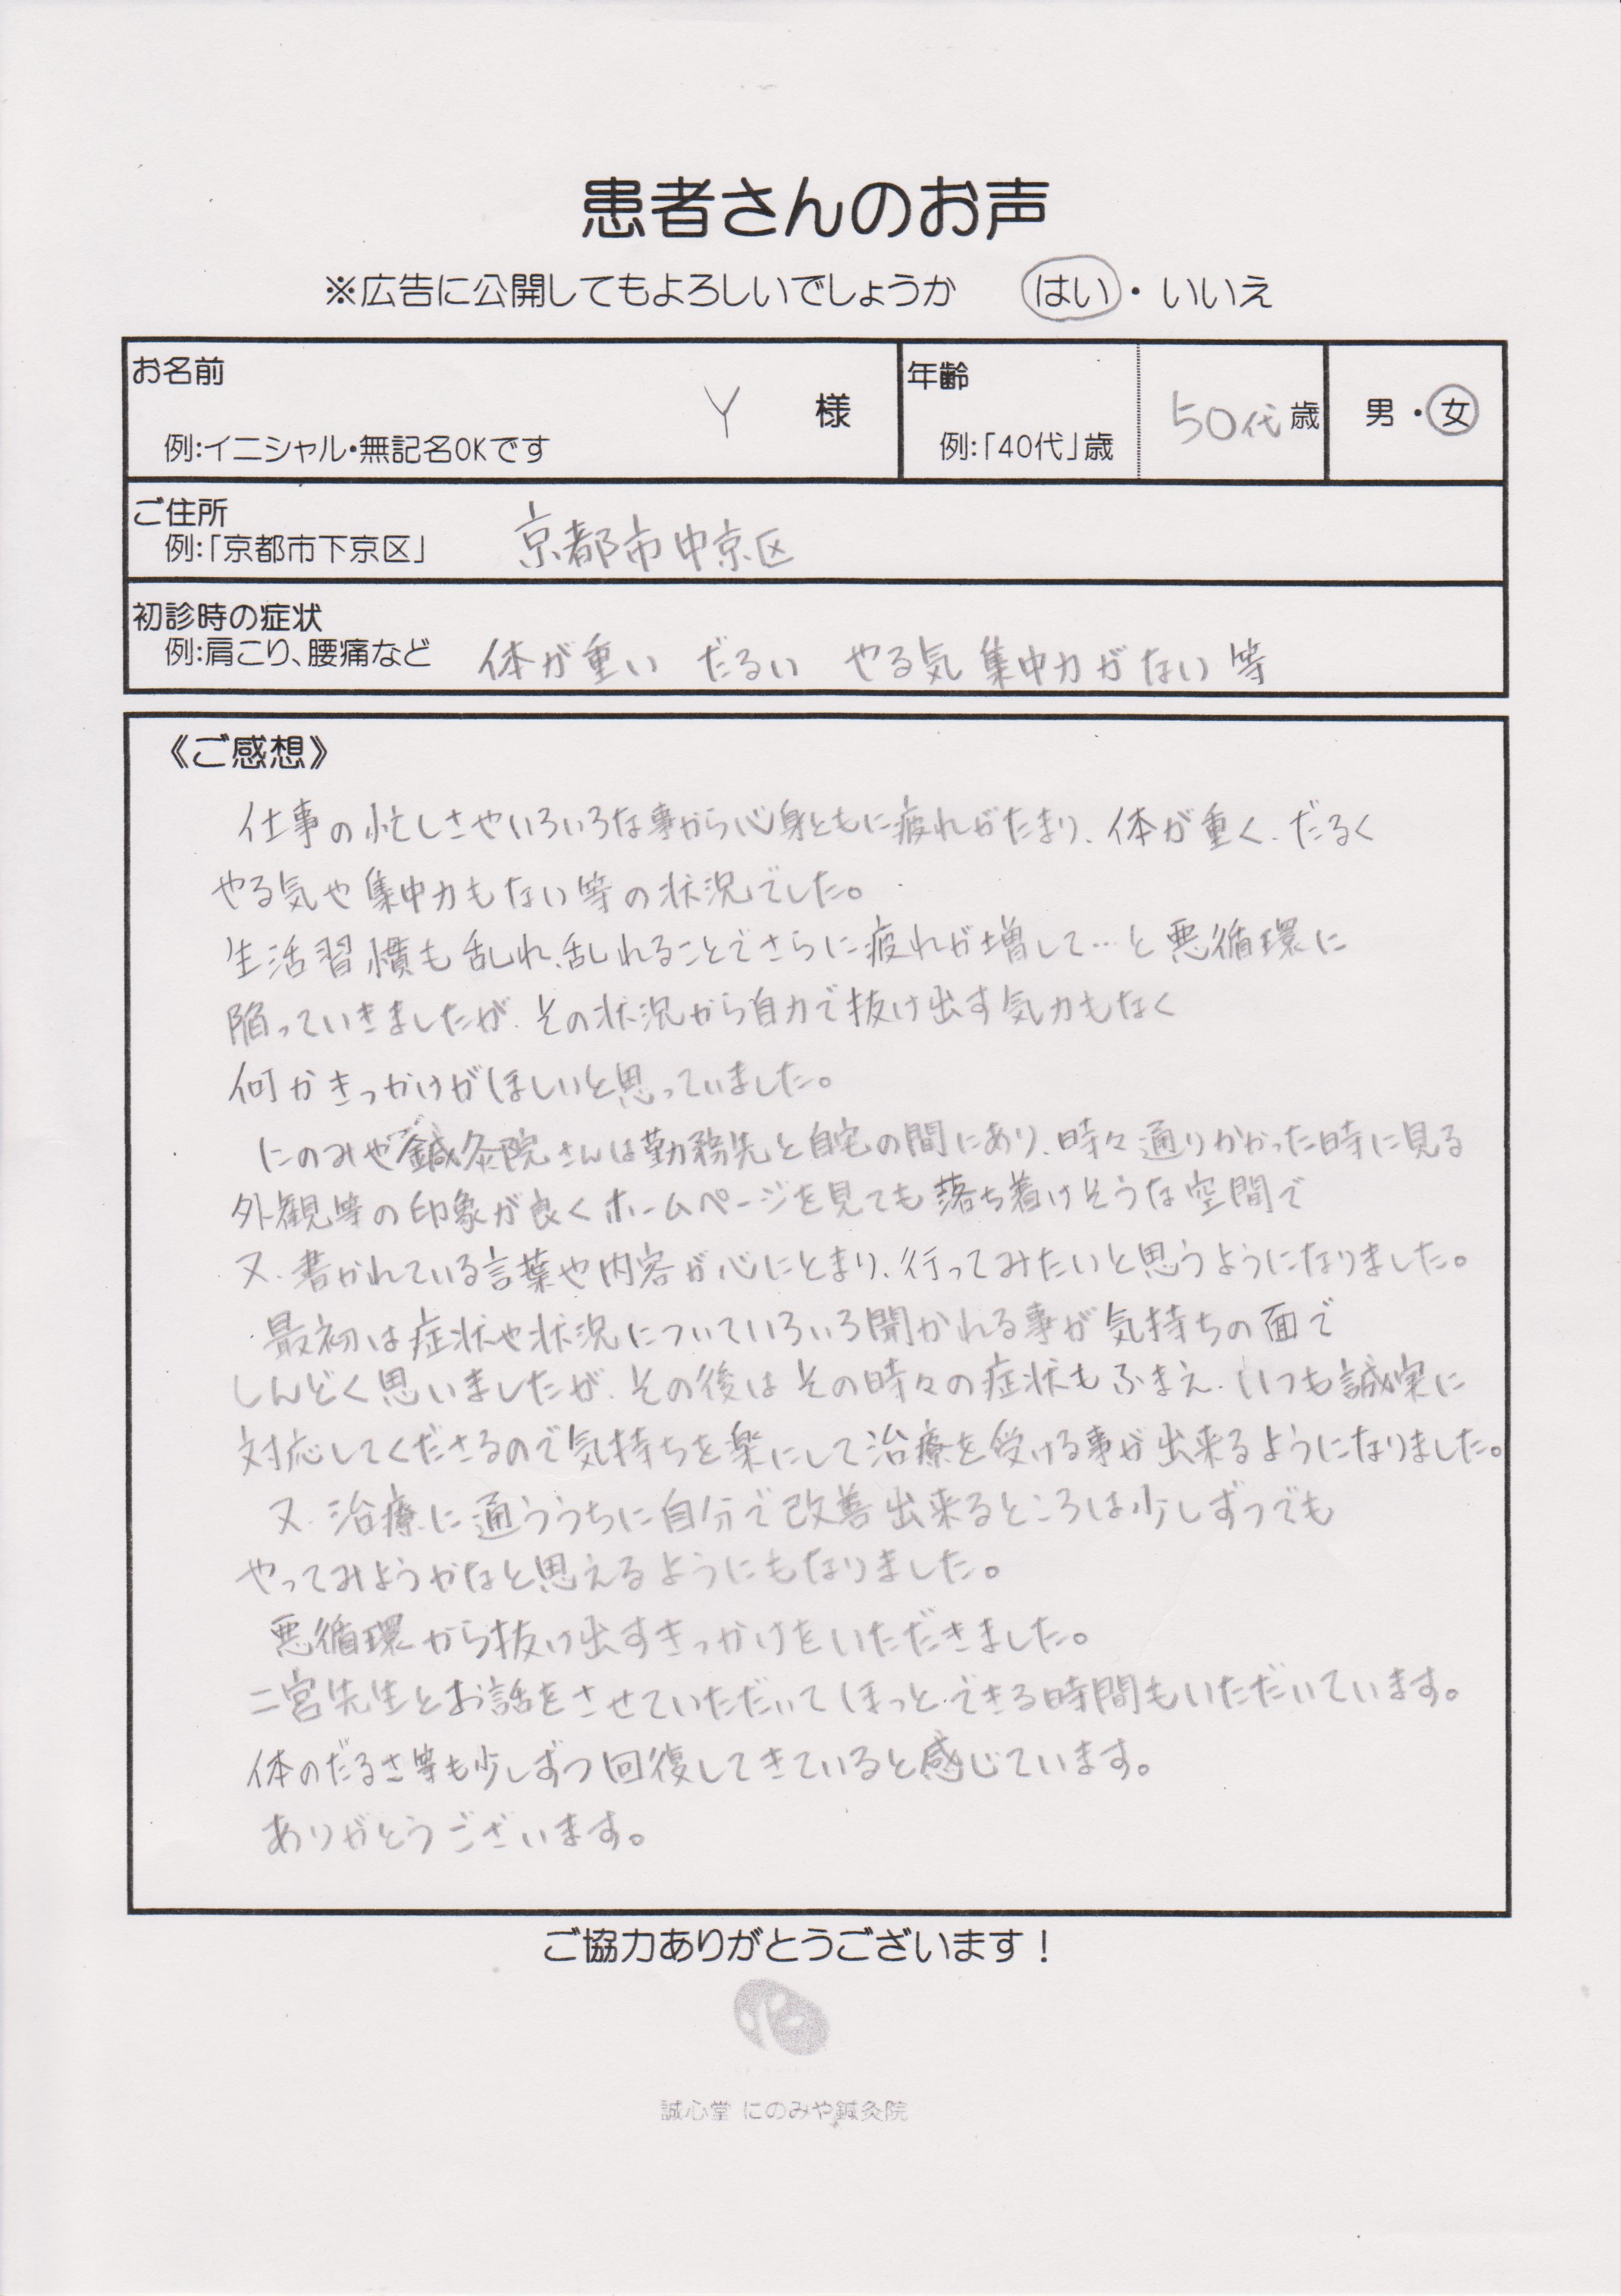 患者さんのお声
※広告に公開してもよろしいでしょうか　はい・いいえ
お名前
Y 様
例:イニシャル・無記名OKです
年齢
例:「40代」歳
50代歳
男・女
ご住所
例:「京都市下京区」
京都市中京区
初診時の症状
例:肩こり、腰痛など
体が重い　だるい　やる気 集中力がない 等
《ご感想》
仕事の忙しさやいろいろな事から心身ともに疲れがたまり、体が重く、だるく
やる気や集中力もない等の状況でした。
生活習慣も乱れ、乱れることでさらに疲れが増して…と悪循環に
陥っていきましたが、その状況から自力で抜け出す気力もなく
何かきっかけがほしいと思っていました。
にのみや鍼灸院さんは勤務先と自宅の間にあり、時々通りかかった時に見る
外観等の印象が良くホームページを見ても落ち着けそうな空間で
又、書かれている言葉や内容が心にとまり、行ってみたいと思うようになりました。
最初は症状や状況についていろいろ聞かれる事が気持ちの面で
しんどく思いましたが、その後はその時々の症状もふまえ、いつも誠実に
対応してくださるので気持ちを楽にして治療を受ける事が出来るようになりました。
又、治療に通ううちに自分で改善出来るところは少しずつでも
やってみようかなと思えるようにもなりました。
悪循環から抜け出すきっかけをいただきました。
二宮先生とお話をさせていただいてほっとできる時間もいただいています。
体のだるさ等も少しずつ回復してきていると感じています。
ありがとうございます。
ご協力ありがとうございます！
誠心堂 にのみや鍼灸院